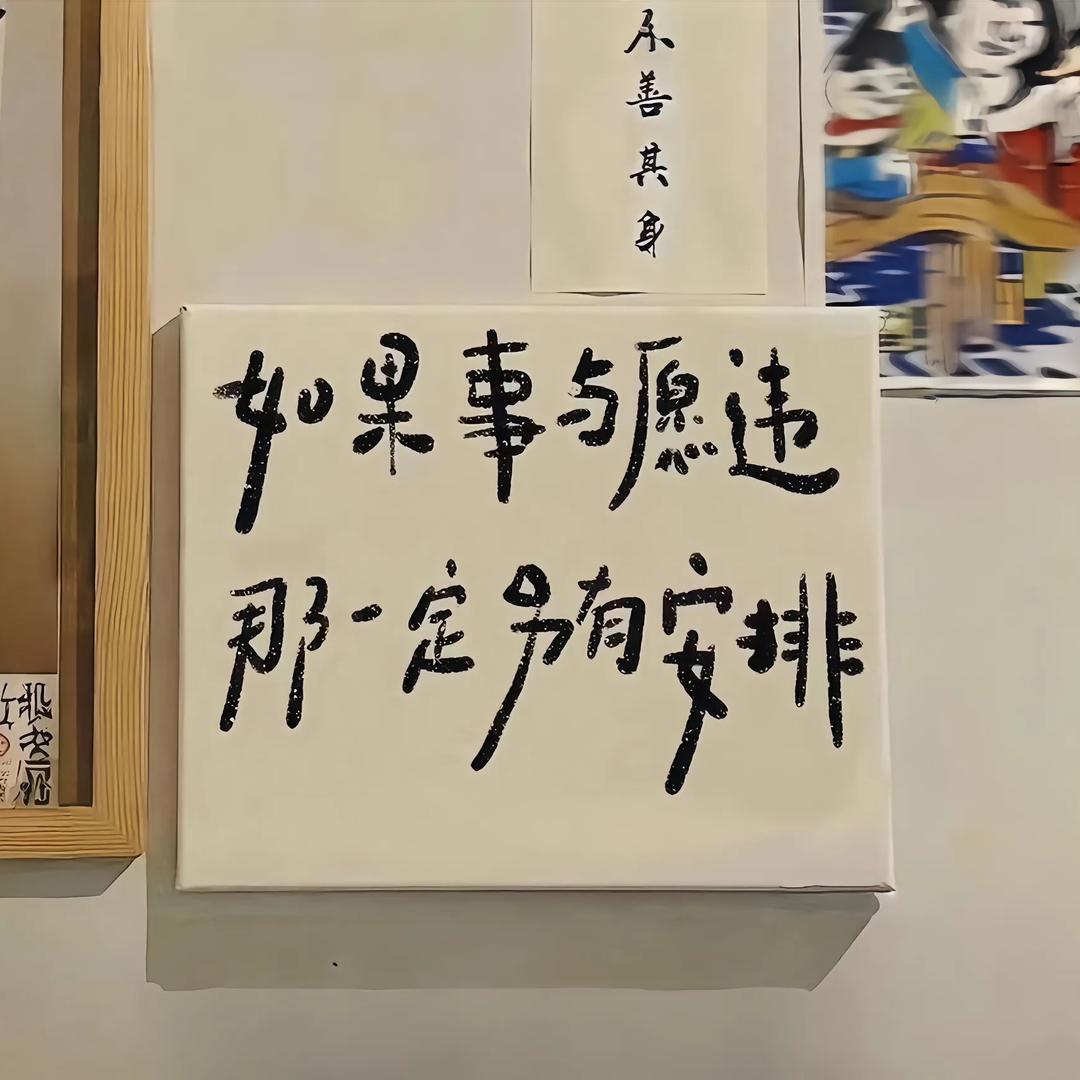 不善其身
如果事与愿违
那一定另有安排